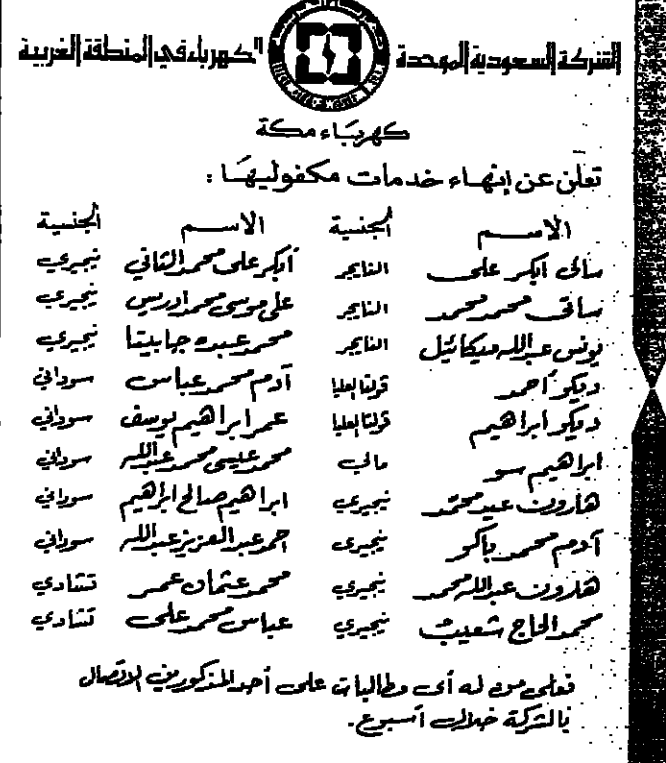 الشركة السعودية الموحدة للكهرباء في المنطقة الغربية
كهرباء مكة
تعلن عن إنهاء خدمات مكفوليها :
الاسم الجنسية الاسم الجنسية
سالى ابكر على النايجر أبكر على محمد الثاني نيجيري
ساني محمد محمد النايجر على موسى محمد ادريس نيجيري
يونس عبدالله ميكائيل النايجر محمد عبده جابيتا نيجيري
ديكو أحمد فولتا العليا آدم محمد عباس سوداني
ديكو ابراهيم فولتا العليا عمر ابراهيم يوسف سوداني
ابراهيم سو مالي محمد عيسى محمد عبدالله سوداني
هارون عيد محمد نيجيري ابراهيم صالح ابراهيم سوداني
آدم محمد باكو نيجيرى احمد عبدالعزيز عبدالله سوداني
هارون عبدالله محمد نيجيري محمد عثمان عمر تشادي
محمد الحاج شعيب نيجيري عباس محمد على تشادي
فعلى من له أى مطالبات على أحد المذكورين الاتصال
بالشركة خلال أسبوع .